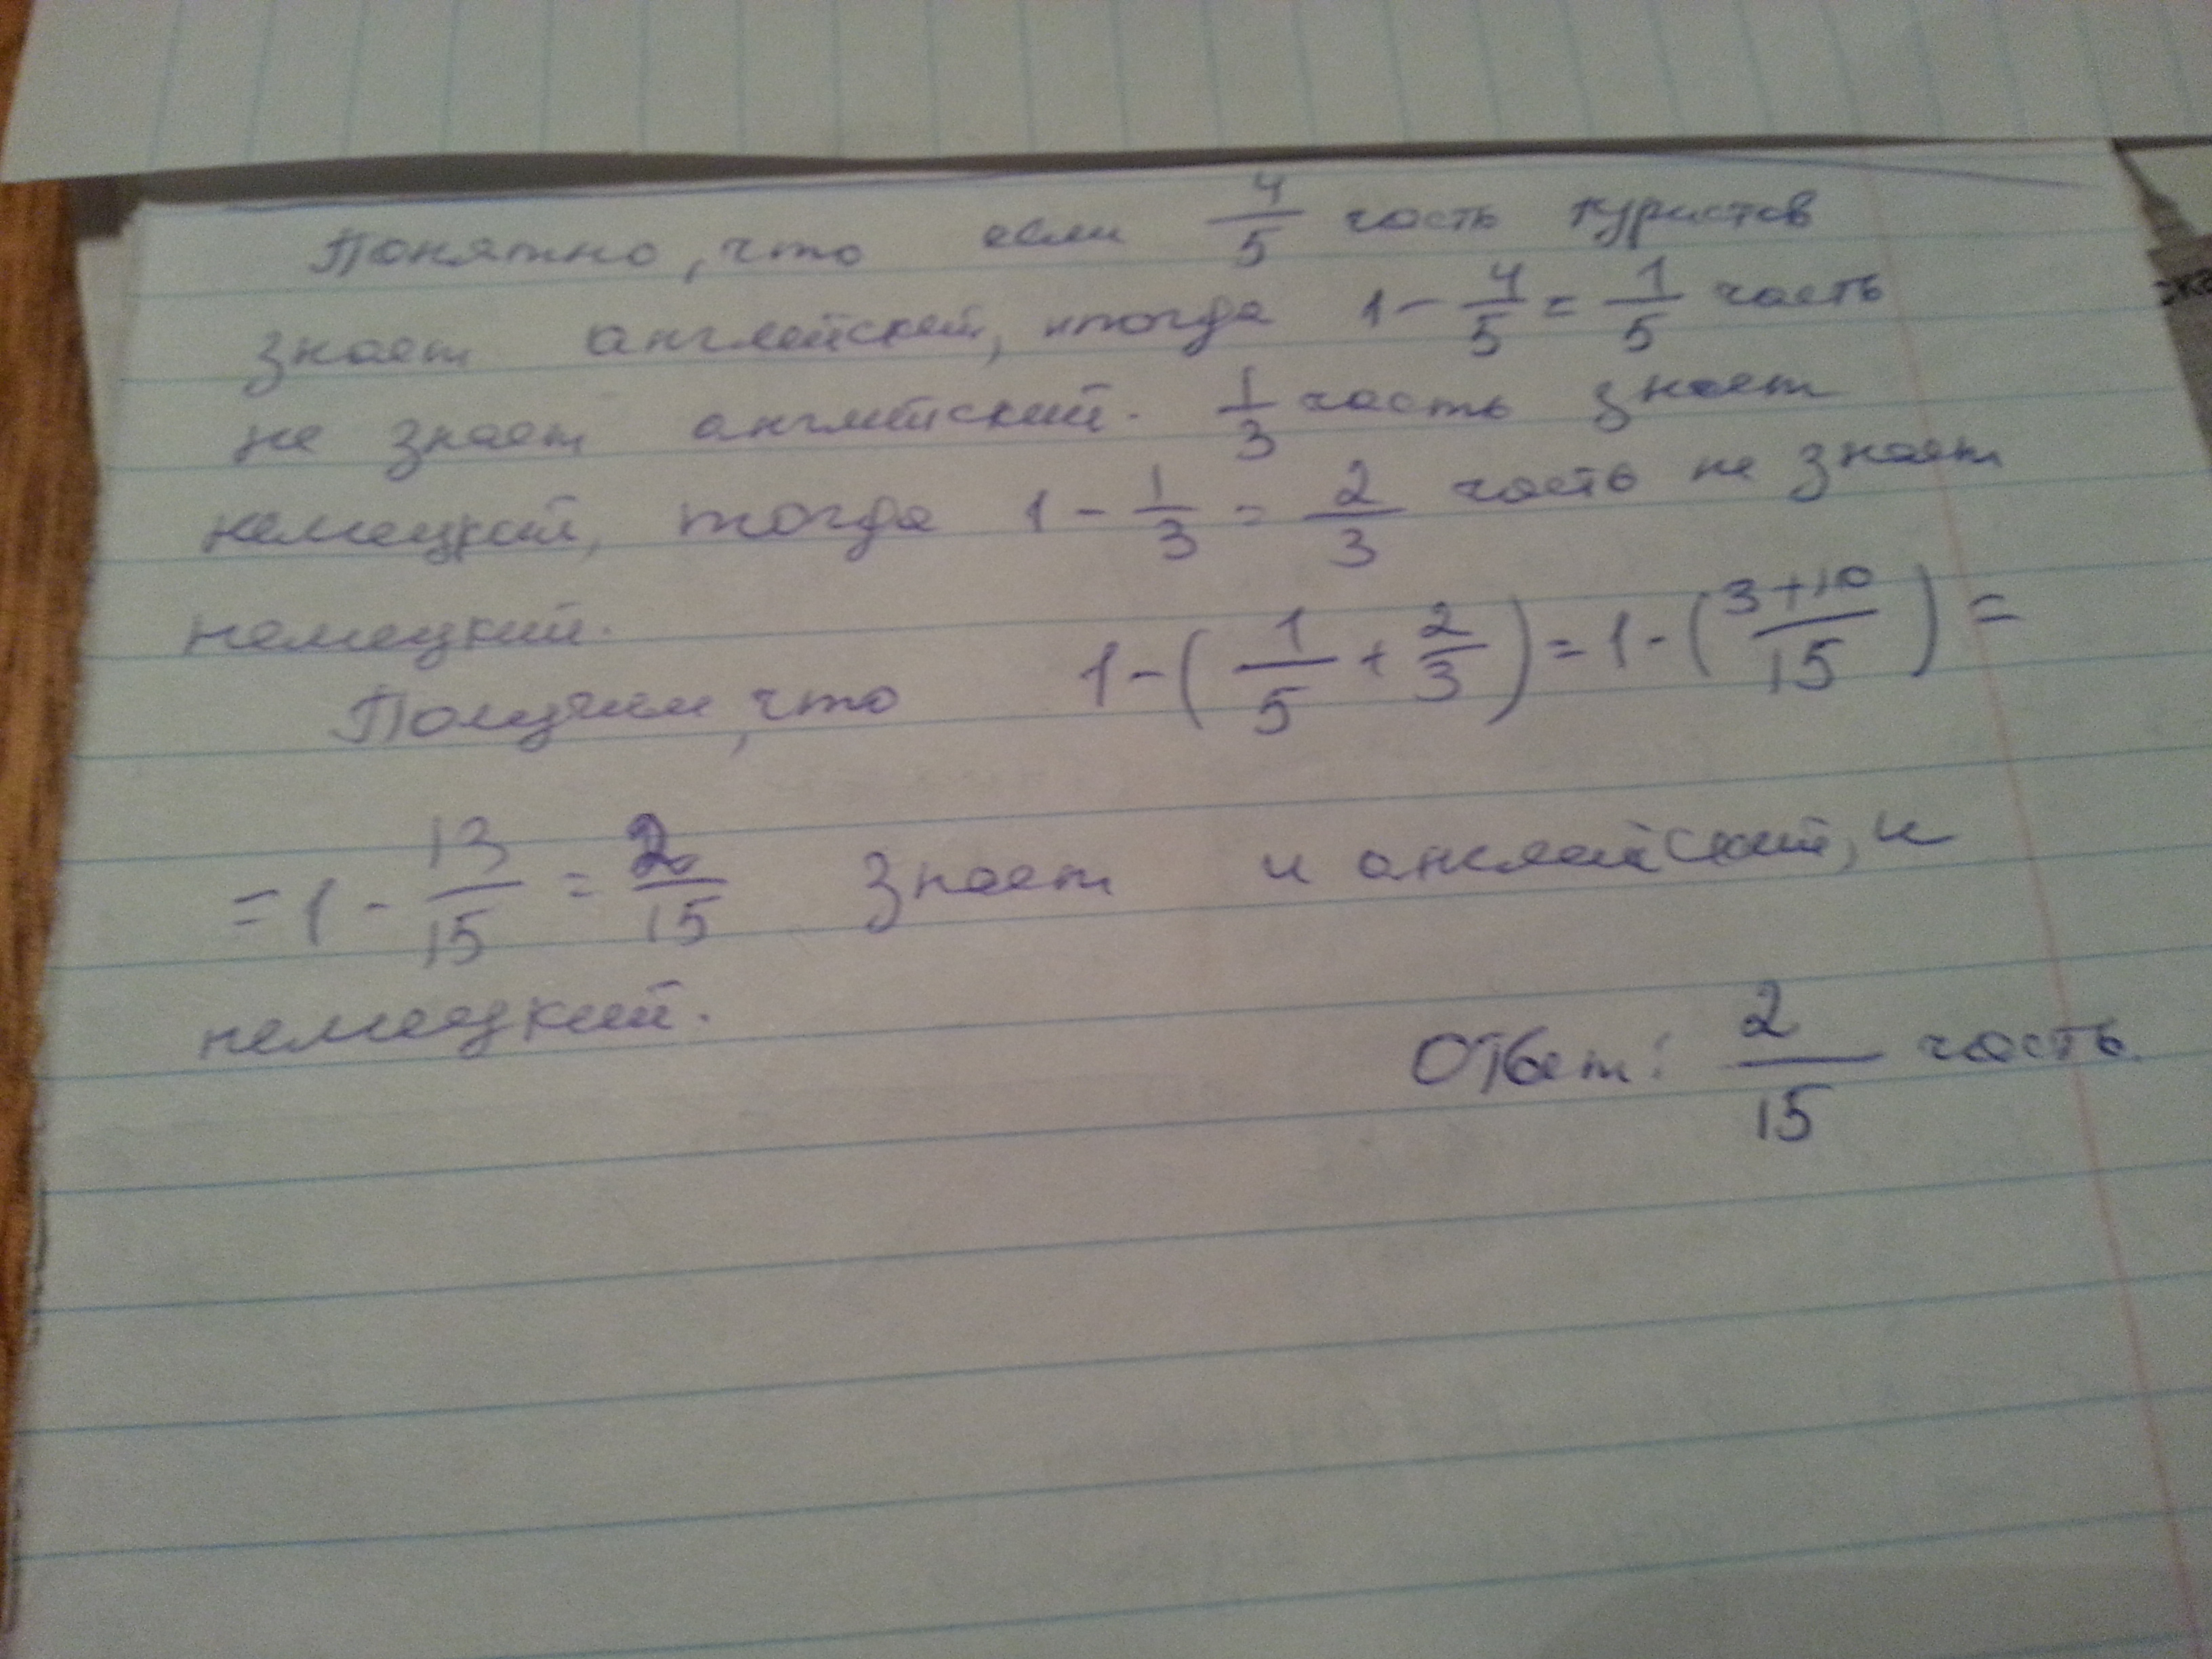 Понятно, что если 4/5 часть туристов
знает английский, тогда 1 - 4/5 = 1/5 часть
не знает английский. 1/3 часть знает
немецкий, тогда 1 - 1/3 = 2/3 часть не знает
немецкий.
Получим, что 1 - (1/5 + 2/3) = 1 - (3+10/15) =
= 1 - 13/15 = 2/15 знает и английский, и
немецкий.
Ответ: 2/15 часть.